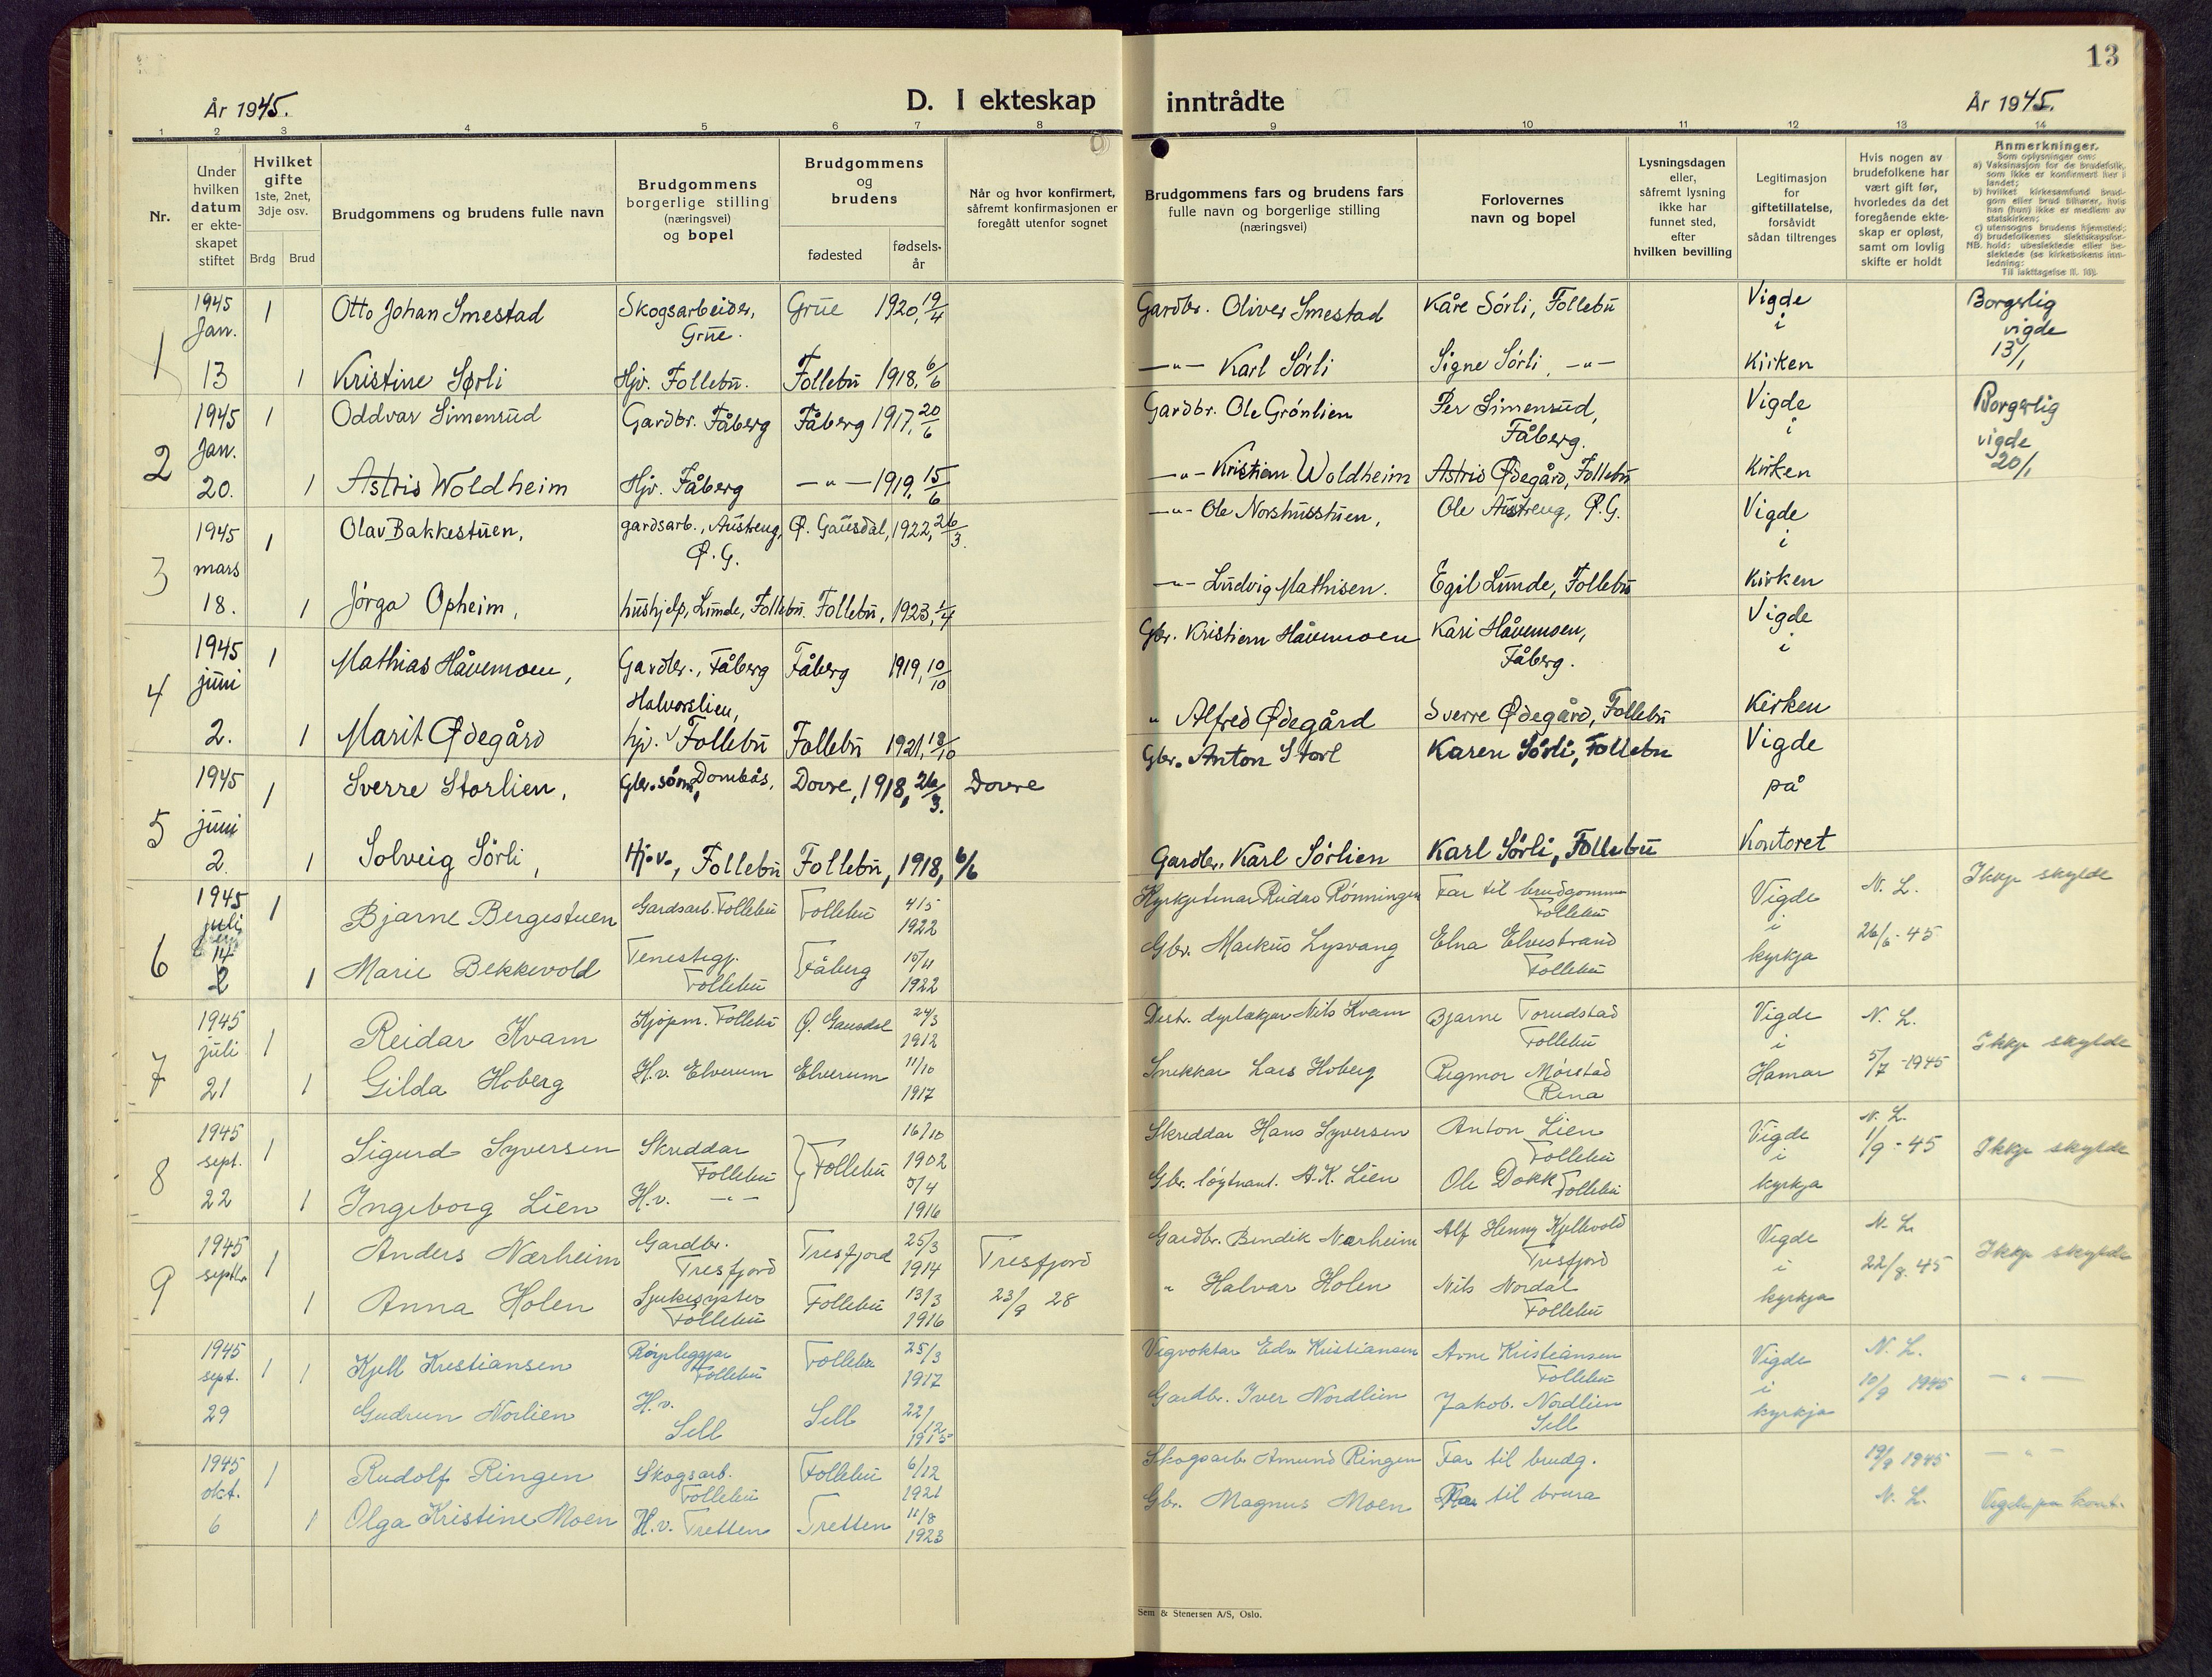 13
År 1945.
D. I ekteskap inntrådte
År 1945.
1 2 3 4 5 6 7 8 9 10 11 12 13 14
Nr.
Under hvilken datum er ekte-skapet stiftet
Hvilket gifte 1ste, 2net, 3dje osv.
Brdg Brud
Brudgommens og brudens fulle navn
Brudgommens borgerlige stilling (næringsvei) og bopel
Brudgommens og brudens
fødested
fødsels-år
Når og hvor konfirmert, såfremt konfirmasjonen er foregått utenfor sognet
Brudgommens fars og brudens fars fulle navn og borgerlige stilling (næringsvei)
Forlovernes navn og bopel
Lysningsdagen eller, såfremt lysning ikke har funnet sted, efter hvilken bevilling
Legitimasjon for giftetillatelse, forsåvidt sådan tiltrenges
Hvis nogen av brudefolkene har vært gift før, hvorledes da det foregående ekte-skap er opløst, samt om lovlig skifte er holdt
Anmerkninger.
Som oplysninger om:
a) Vaksinasjon for de brudefolk, som ikke er konfirmert her i landet;
b) hvilket kirkesamfund brud-gom eller brud tilhører, hvis han (hun) ikke er medlem av statskirken;
c) utensogns brudens hjemsted;
d) brudefolkenes slektskapsfor-hold: ubeslektede eller be-slektede (se kirkebokens inn-ledning:
NB. Til iakttagelse II. 10).
1 1945 Jan. 13
1 Otto Johan Smestad Skogsarbeider, Grue. Grue 1920, 19/4 Gardbr. Oliver Smestad Kåre Sórli, Follebu Vigde i Kirken Borgerlig vigde 13/1
1 Kristine Sørli Hjv. Follebu. Follebu 1918, 6/6 —"— Karl Sórli Signe Sórli, —"—
2 1945 Jan. 20.
1 Oddvar Simensud Gardbr. Fåberg Fåberg 1917, 20/6 Gardbr. Ole Grónlien Per Simensud, Fåberg. Vigde i Kirken Borgerlig vigde 20/1
1 Astrid Woldheim Hjv. Fåberg —"— 1919, 15/6 —"— Kristian Woldheim Astrid Ødegård, Follebu
3 1945 mars 18.
1 Olav Bakkestuen, gardsarb., Austreng, Ø.G. Ø. Gausdal, 1922, 26/3. —"— Ole Norshusstuen, Ole Austreng, Ø.G. Vigde i Kirken
1 Jórga Opheim, hushjelp, Lunde, Follebu. Follebu, 1923, 1/4 —"— Ludvig Mathisen. Egil Lunde, Follebu
4 1945 juni 2.
1 Mathias Håvemoen, Gardbr., Fåberg Fåberg 1919, 10/10 Gbr. Kristian Håvemoen Kari Håvemoen, Fåberg. Vigde i Kirken
1 Marit Ødegård Halvorslien, hjv. Follebu Follebu 1921, 18/10 " Alfred Ødegård Sverre Ødegård, Follebu
5 1945 juni 2.
1 Sverre Storlien, Gbr. sónn, Dombås. Dovre, 1918, 26/3. Dovre Gbr. Anton Storl Karen Sórli, Follebu Vigde på Kontoret
1 Solveig Sórli, Hj.v., Follebu Follebu, 1918, 6/6 Gardbr. Karl Sórlien Karl Sórli, Follebu
6 1945 juli 14
1 Bjarne Bergestuen Gardsarb. Follebu Follebu 4/5 1922 Kyrkjetenar Reidar Rónningen Far til brudgomm Follebu Vigde i kyrkja N. L. 26/6-45 Ikkje skylde
1 Marie Bekkevold Tenestegj. Follebu Fåberg 15/11 1922 Gbr. Markus Lysvang Elna Elvestrand Follebu
7 1945 juli 21
1 Reidar Kvam Kjópm. Follebu Ø. Gausdal 24/3 1912 Distr. dyrlækjar Nils Kvam Bjarne Torudstad Follebu Vigde i Hamar N. L. 5/7-1945 Ikkje skylde
1 Gilda Hoberg H.v. Elverum Elverum 11/10 1917 Snikkar Lars Hoberg Rigmor Mórstad Rena
8 1945 sept. 22
1 Sigurd Syversen Skreddar Follebu Follebu 16/10 1902 Skreddar Hans Syversen Anton Lien Follebu Vigde i kyrkja N. L. 1/9-45 Ikkje skylde
1 Ingeborg Lien H.v. —"— 5/4 1916 Gbr. lóytnant. A.K. Lien Ole Dokk Follebu
9 1945 septbr
1 Anders Nærheim Gardbr. Tresfjord Tresfjord 25/3 1914 Tresfjord 23/9 28 Gardbr. Bendik Nærheim Alf Henny Kjellvold Tresfjord Vigde i kyrkja N. L. 22/8.45 Ikkje skylde
1 Anna Holen Sjukesyster Follebu Follebu 13/3 1916 " Halvar Holen Nils Nordal Follebu
1945 sept. 29
1 1 Kjell Kristiansen Róyrleggjar Follebu Follebu 25/3 1917 Vegvoktar Edv Kristiansen Arne Kristiansen Follebu Vigde i kyrkja N. L. 10/9 1945 —"—
Gudrun Norlien H.v. Sell Sell 22/12 1915 Gardbr. Iver Nordlien Jakob. Nordlien Sell
1945 okt. 6
1 Rudolf Ringen Skogsarb. Follebu Follebu 6/12 1921 Skogsarb. Amund Ringen Far til brudg. 19/9 1945 N. L. —"—
1 Olga Kristine Moen H.v. Tretten Tretten 11/8 1923 Gbr. Magnus Moen Far til brura Vigde på kont.
Sem & Stenersen A/S, Oslo.